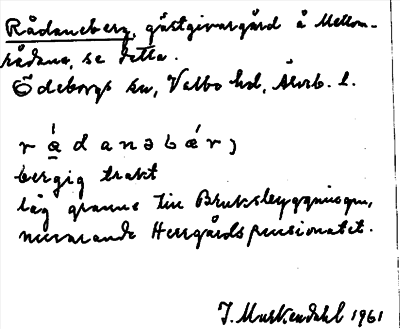 Rådaneberg, gästgivargård å Mellom-
rådane, se detta.
Ödeborgs sn, Valbo hd, Älvsb. l.
r ǻ d a n ə b æ r j
bergig trakt
låg granne till Bruksbyggningen,
nuvarande Herrgårdspensionatet.
J. Murkendahl 1961